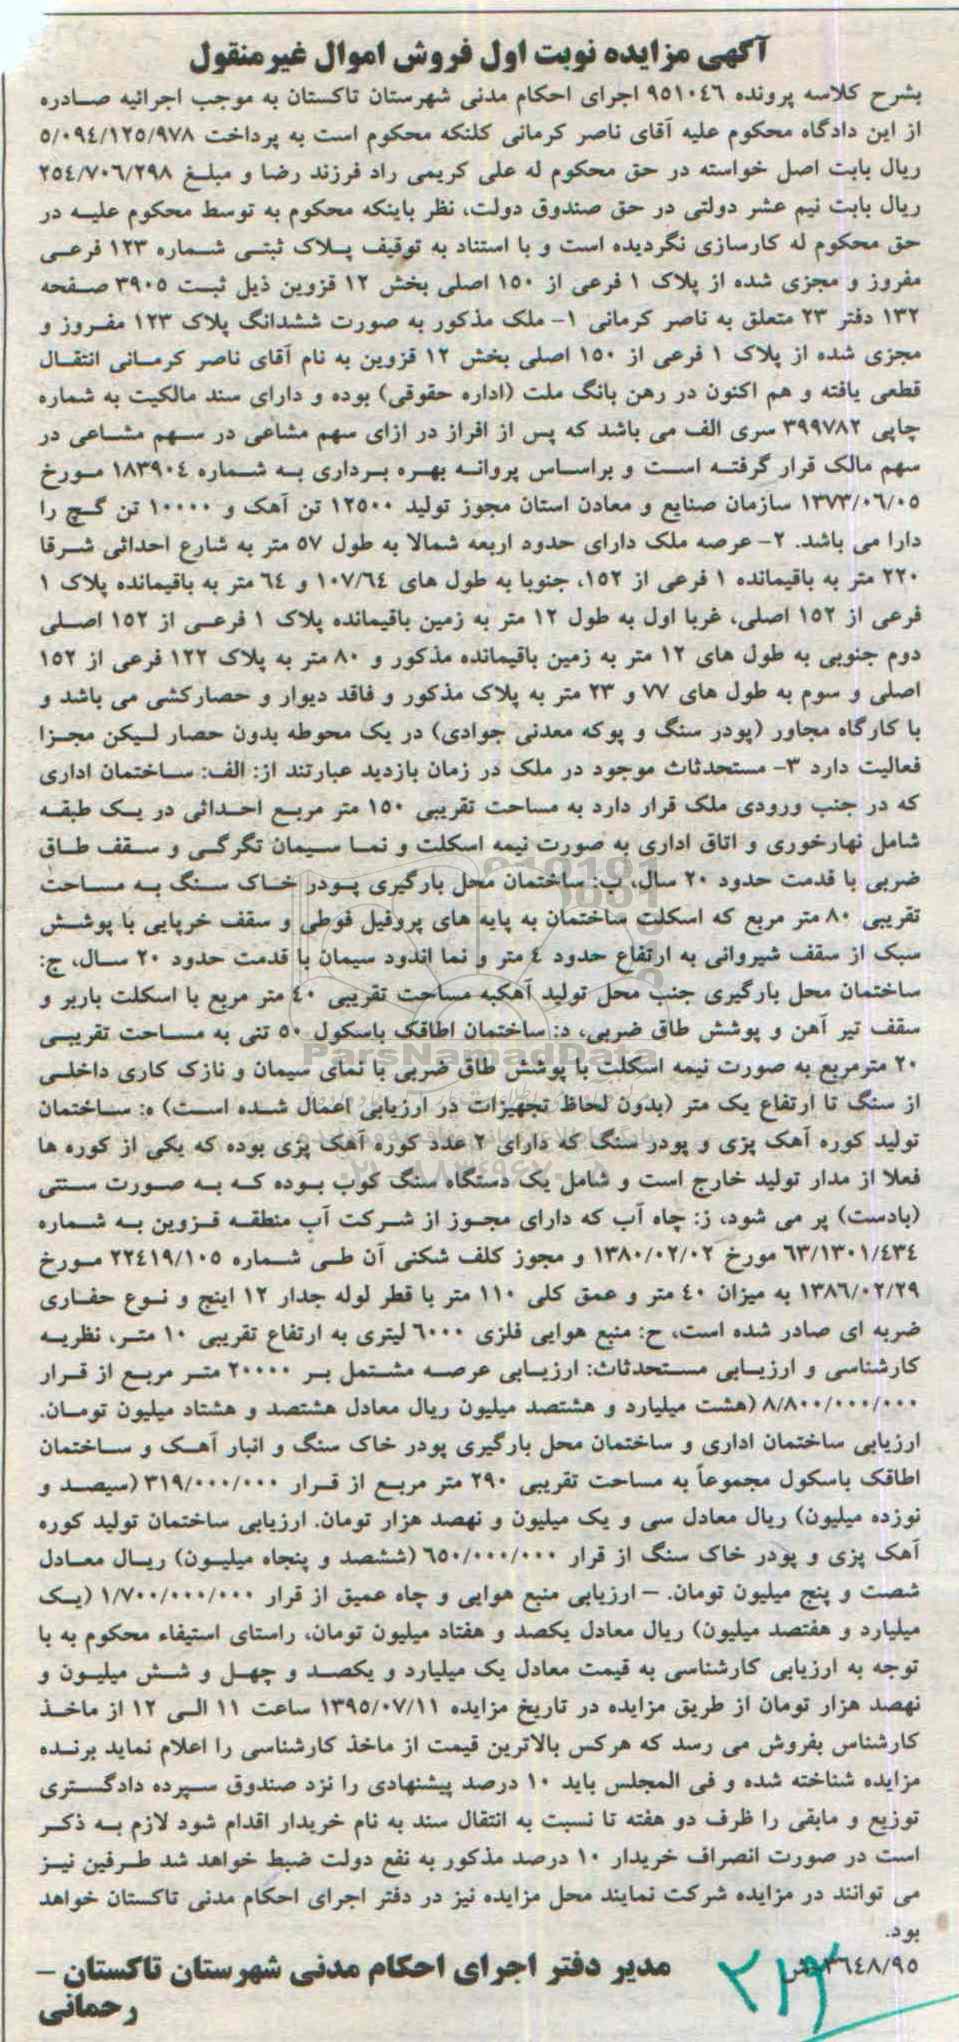 آگهی مزایده نوبت اول فروش اموال غیرمنقول
بشرح کلاسه پرونده ۹۵۱۰۴۶ اجرای احکام مدنی شهرستان تاکستان به موجب اجرائیه صادره
از این دادگاه محکوم علیه آقای ناصر کرمانی کلنکه محکوم است به پرداخت ۵/۰۹۴/۱۲۵/۹۷۸
ریال بابت اصل خواسته در حق محکوم له علی کریمی راد فرزند رضا و مبلغ ۲۵۴/۷۰۶/۲۹۸
ریال بابت نیم عشر دولتی در حق صندوق دولت، نظر باینکه محکوم به توسط محکوم علیه در
حق محکوم له کارسازی نگردیده است و با استناد به توقیف پلاک ثبتی شماره ۱۲۳ فرعی
مفروز و مجزی شده از پلاک ۱ فرعی از ۱۵۰ اصلی بخش ۱۲ قزوین ذیل ثبت ۳۹۰۵ صفحه
۱۳۲ دفتر ۲۳ متعلق به ناصر کرمانی ۱- ملک مذکور به صورت ششدانگ پلاک ۱۲۳ مفروز و
مجزی شده از پلاک ۱ فرعی از ۱۵۰ اصلی بخش ۱۲ قزوین به نام آقای ناصر کرمانی انتقال
قطعی یافته و هم اکنون در رهن بانگ ملت (اداره حقوقی) بوده و دارای سند مالکیت به شماره
چاپی ۳۹۹۷۸۲ سری الف می باشد که پس از افراز در ازای سهم مشاعی در سهم مشاعی در
سهم مالک قرار گرفته است و براساس پروانه بهره برداری به شماره ۱۸۳۹۰۴ مورخ
۱۳۷۳/۰۶/۰۵ سازمان صنایع و معادن استان مجوز تولید ۱۲۵۰۰ تن آهک و ۱۰۰۰۰ تن گچ را
دارا می باشد. ۲- عرصه ملک دارای حدود اربعه شمالا به طول ۵۷ متر به شارع احداثی شرقا
۲۲۰ متر به باقیمانده ۱ فرعی از ۱۵۲، جنوبا به طول های ۱۰۷/۶۴ و ۶۴ متر به باقیمانده پلاک ۱
فرعی از ۱۵۲ اصلی، غربا اول به طول ۱۲ متر به زمین باقیمانده پلاک ۱ فرعی از ۱۵۲ اصلی
دوم جنوبی به طول های ۱۲ متر به زمین باقیمانده مذکور و ۸۰ متر به پلاک ۱۲۲ فرعی از ۱۵۲
اصلی و سوم به طول های ۷۷ و ۲۳ متر به پلاک مذکور و فاقد دیوار و حصارکشی می باشد و
با کارگاه مجاور (پودر سنگ و پوکه معدنی جوادی) در یک محوطه بدون حصار لیکن مجزا
فعالیت دارد ۳- مستحدثات موجود در ملک در زمان بازدید عبارتند از: الف: ساختمان اداری
که در جنب ورودی ملک قرار دارد به مساحت تقریبی ۱۵۰ متر مربع احداثی در یک طبقه
شامل نهارخوری و اتاق اداری به صورت نیمه اسکلت و نما سیمان تگرگی و سقف طاق
ضربی با قدمت حدود ۲۰ سال، ب: ساختمان محل بارگیری پودر خاک سنگ به مساحت
تقریبی ۸۰ متر مربع که اسکلت ساختمان به پایه های پروفیل قوطی و سقف خرپایی با پوشش
سبک از سقف شیروانی به ارتفاع حدود ۴ متر و نما اندود سیمان با قدمت حدود ۲۰ سال، ج:
ساختمان محل بارگیری جنب محل تولید آهکبه مساحت تقریبی ۴۰ متر مربع با اسکلت باربر و
سقف تیر آهن و پوشش طاق ضربی، د: ساختمان اطاقک باسکول ۵۰ تنی به مساحت تقریبی
ParsNamadData
۲۰ مترمربع به صورت نیمه اسکلت با پوشش طاق ضربی با نمای سیمان و نازک کاری داخلی
از سنگ تا ارتفاع یک متر (بدون لحاظ تجهیزات در ارزیابی اعمال شده است) ه: ساختمان
تولید کوره آهک پزی و پودر سنگ که دارای ۲ عدد کوره آهک پزی بوده که یکی از کوره ها
فعلا از مدار تولید خارج است و شامل یک دستگاه سنگ کوب بوده که به صورت سنتی
(بادست) پر می شود، ز: چاه آب که دارای مجوز از شرکت آب منطقه قزوین به شماره
۶۳/۱۳۰۱/۴۳۴ مورخ ۱۳۸۰/۰۲/۰۲ و مجوز کلف شکنی آن طی شماره ۲۲۴۱۹/۱۰۵ مورخ
۱۳۸۶/۰۲/۲۹ به میزان ۴۰ متر و عمق کلی ۱۱۰ متر با قطر لوله جدار ۱۲ اینچ و نوع حفاری
ضربه ای صادر شده است، ح: منبع هوایی فلزی ۶۰۰۰ لیتری به ارتفاع تقریبی ۱۰ متر، نظریه
کارشناسی و ارزیابی مستحدثات: ارزیابی عرصه مشتمل بر ۲۰۰۰۰ متر مربع از قرار
۸/۸۰۰/۰۰۰/۰۰۰ (هشت میلیارد و هشتصد میلیون ریال معادل هشتصد و هشتاد میلیون تومان.
ارزیابی ساختمان اداری و ساختمان محل بارگیری پودر خاک سنگ و انبار آهک و ساختمان
اطاقک باسکول مجموعاً به مساحت تقریبی ۲۹۰ متر مربع از قرار ۳۱۹/۰۰۰/۰۰۰ (سیصد و
نوزده میلیون) ریال معادل سی و یک میلیون و نهصد هزار تومان. ارزیابی ساختمان تولید کوره
آهک پزی و پودر خاک سنگ از قرار ۶۵۰/۰۰۰/۰۰۰ (ششصد و پنجاه میلیون) ریال معادل
شصت و پنج میلیون تومان. – ارزیابی منبع هوایی و چاه عمیق از قرار ۱/۷۰۰/۰۰۰/۰۰۰ (یک
میلیارد و هفتصد میلیون) ریال معادل یکصد و هفتاد میلیون تومان، راستای استیفاء محکوم به با
توجه به ارزیابی کارشناسی به قیمت معادل یک میلیارد و یکصد و چهل و شش میلیون و
نهصد هزار تومان از طریق مزایده در تاریخ مزایده ۱۳۹۵/۰۷/۱۱ ساعت ۱۱ الی ۱۲ از ماخذ
کارشناس بفروش می رسد که هرکس بالاترین قیمت از ماخذ کارشناسی را اعلام نماید برنده
مزایده شناخته شده و فی المجلس باید ۱۰ درصد پیشنهادی را نزد صندوق سپرده دادگستری
توزیع و مابقی را ظرف دو هفته تا نسبت به انتقال سند به نام خریدار اقدام شود لازم به ذکر
است در صورت انصراف خریدار ۱۰ درصد مذکور به نفع دولت ضبط خواهد شد طرفین نیز
می توانند در مزایده شرکت نمایند محل مزایده نیز در دفتر اجرای احکام مدنی تاکستان خواهد
بود.
مدیر دفتر اجرای احکام مدنی شهرستان تاکستان –
رحمانی